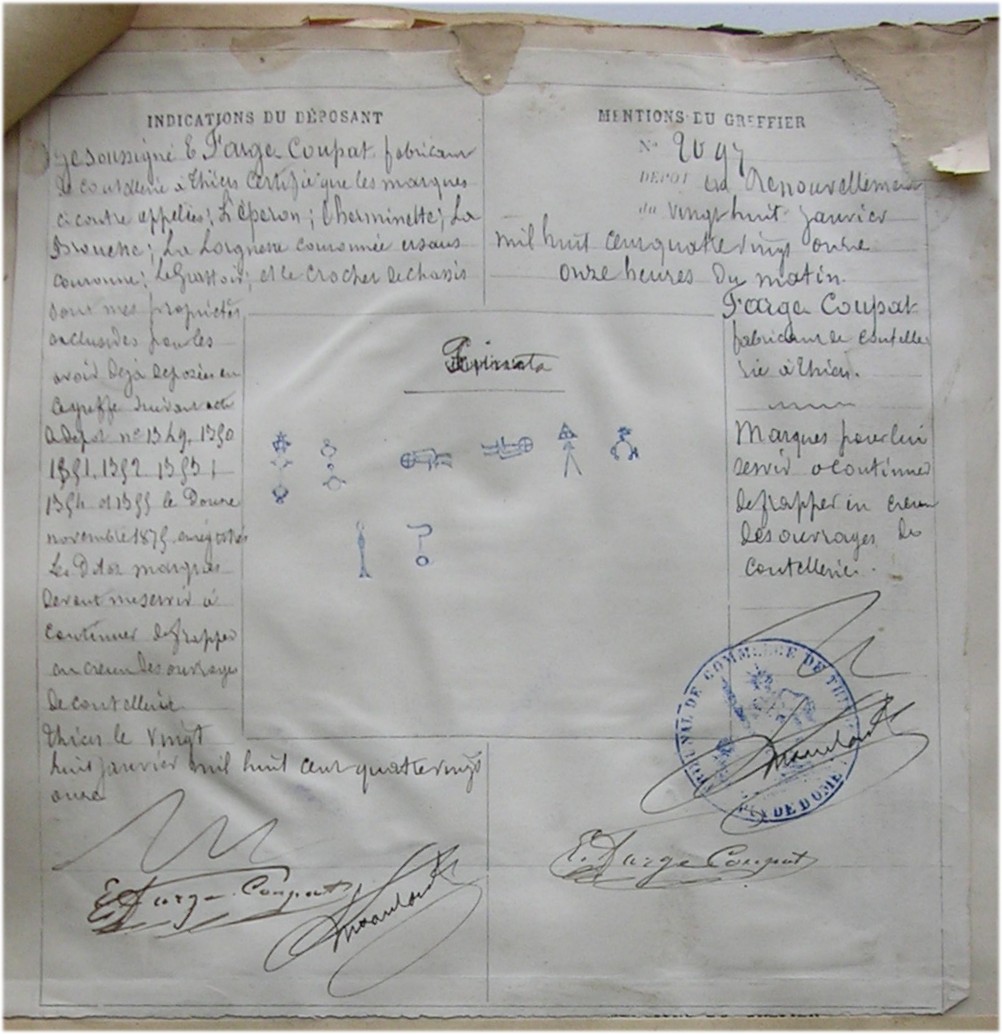 INDICATIONS DU DÉPOSANT
Je soussigné E Farge Coupat fabricant
de coutellerie à Thiers Certifie que les marques
ci contre appelées; L'éperon; L'herminette; La
Brouette; La Lorgnette couronnée et sans
couronne; Le Grattoir; et le crochet de chassis
sont mes propriétés
exclusives pour les
avoir Déjà déposées en
ce greffe suivant acte
de dépot n° 1349, 1350
1351. 1352. 1353;
1354 et 1355 le Douze
novembre 1875 enregistré
Les Dites marques
devant me servir à
continuer de frapper
en creux des ouvrages
de coutellerie
Thiers le vingt
huit janvier mil huit cent quatre vingt
onze
E. Farge Coupat
MENTIONS DU GREFFIER
N° 2097
DÉPOT en Renouvellement
du vingt huit janvier
mil huit cent quatre vingt onze
onze heures du matin
Farge Coupat
fabricant de coutelle
rie à Thiers.
Marques pour lui
servir a continuer
de frapper en creux
des ouvrages de
coutellerie.
TRIBUNAL DE COMMERCE DE THIERS
PUY DE DOME
E. Farge Coupat